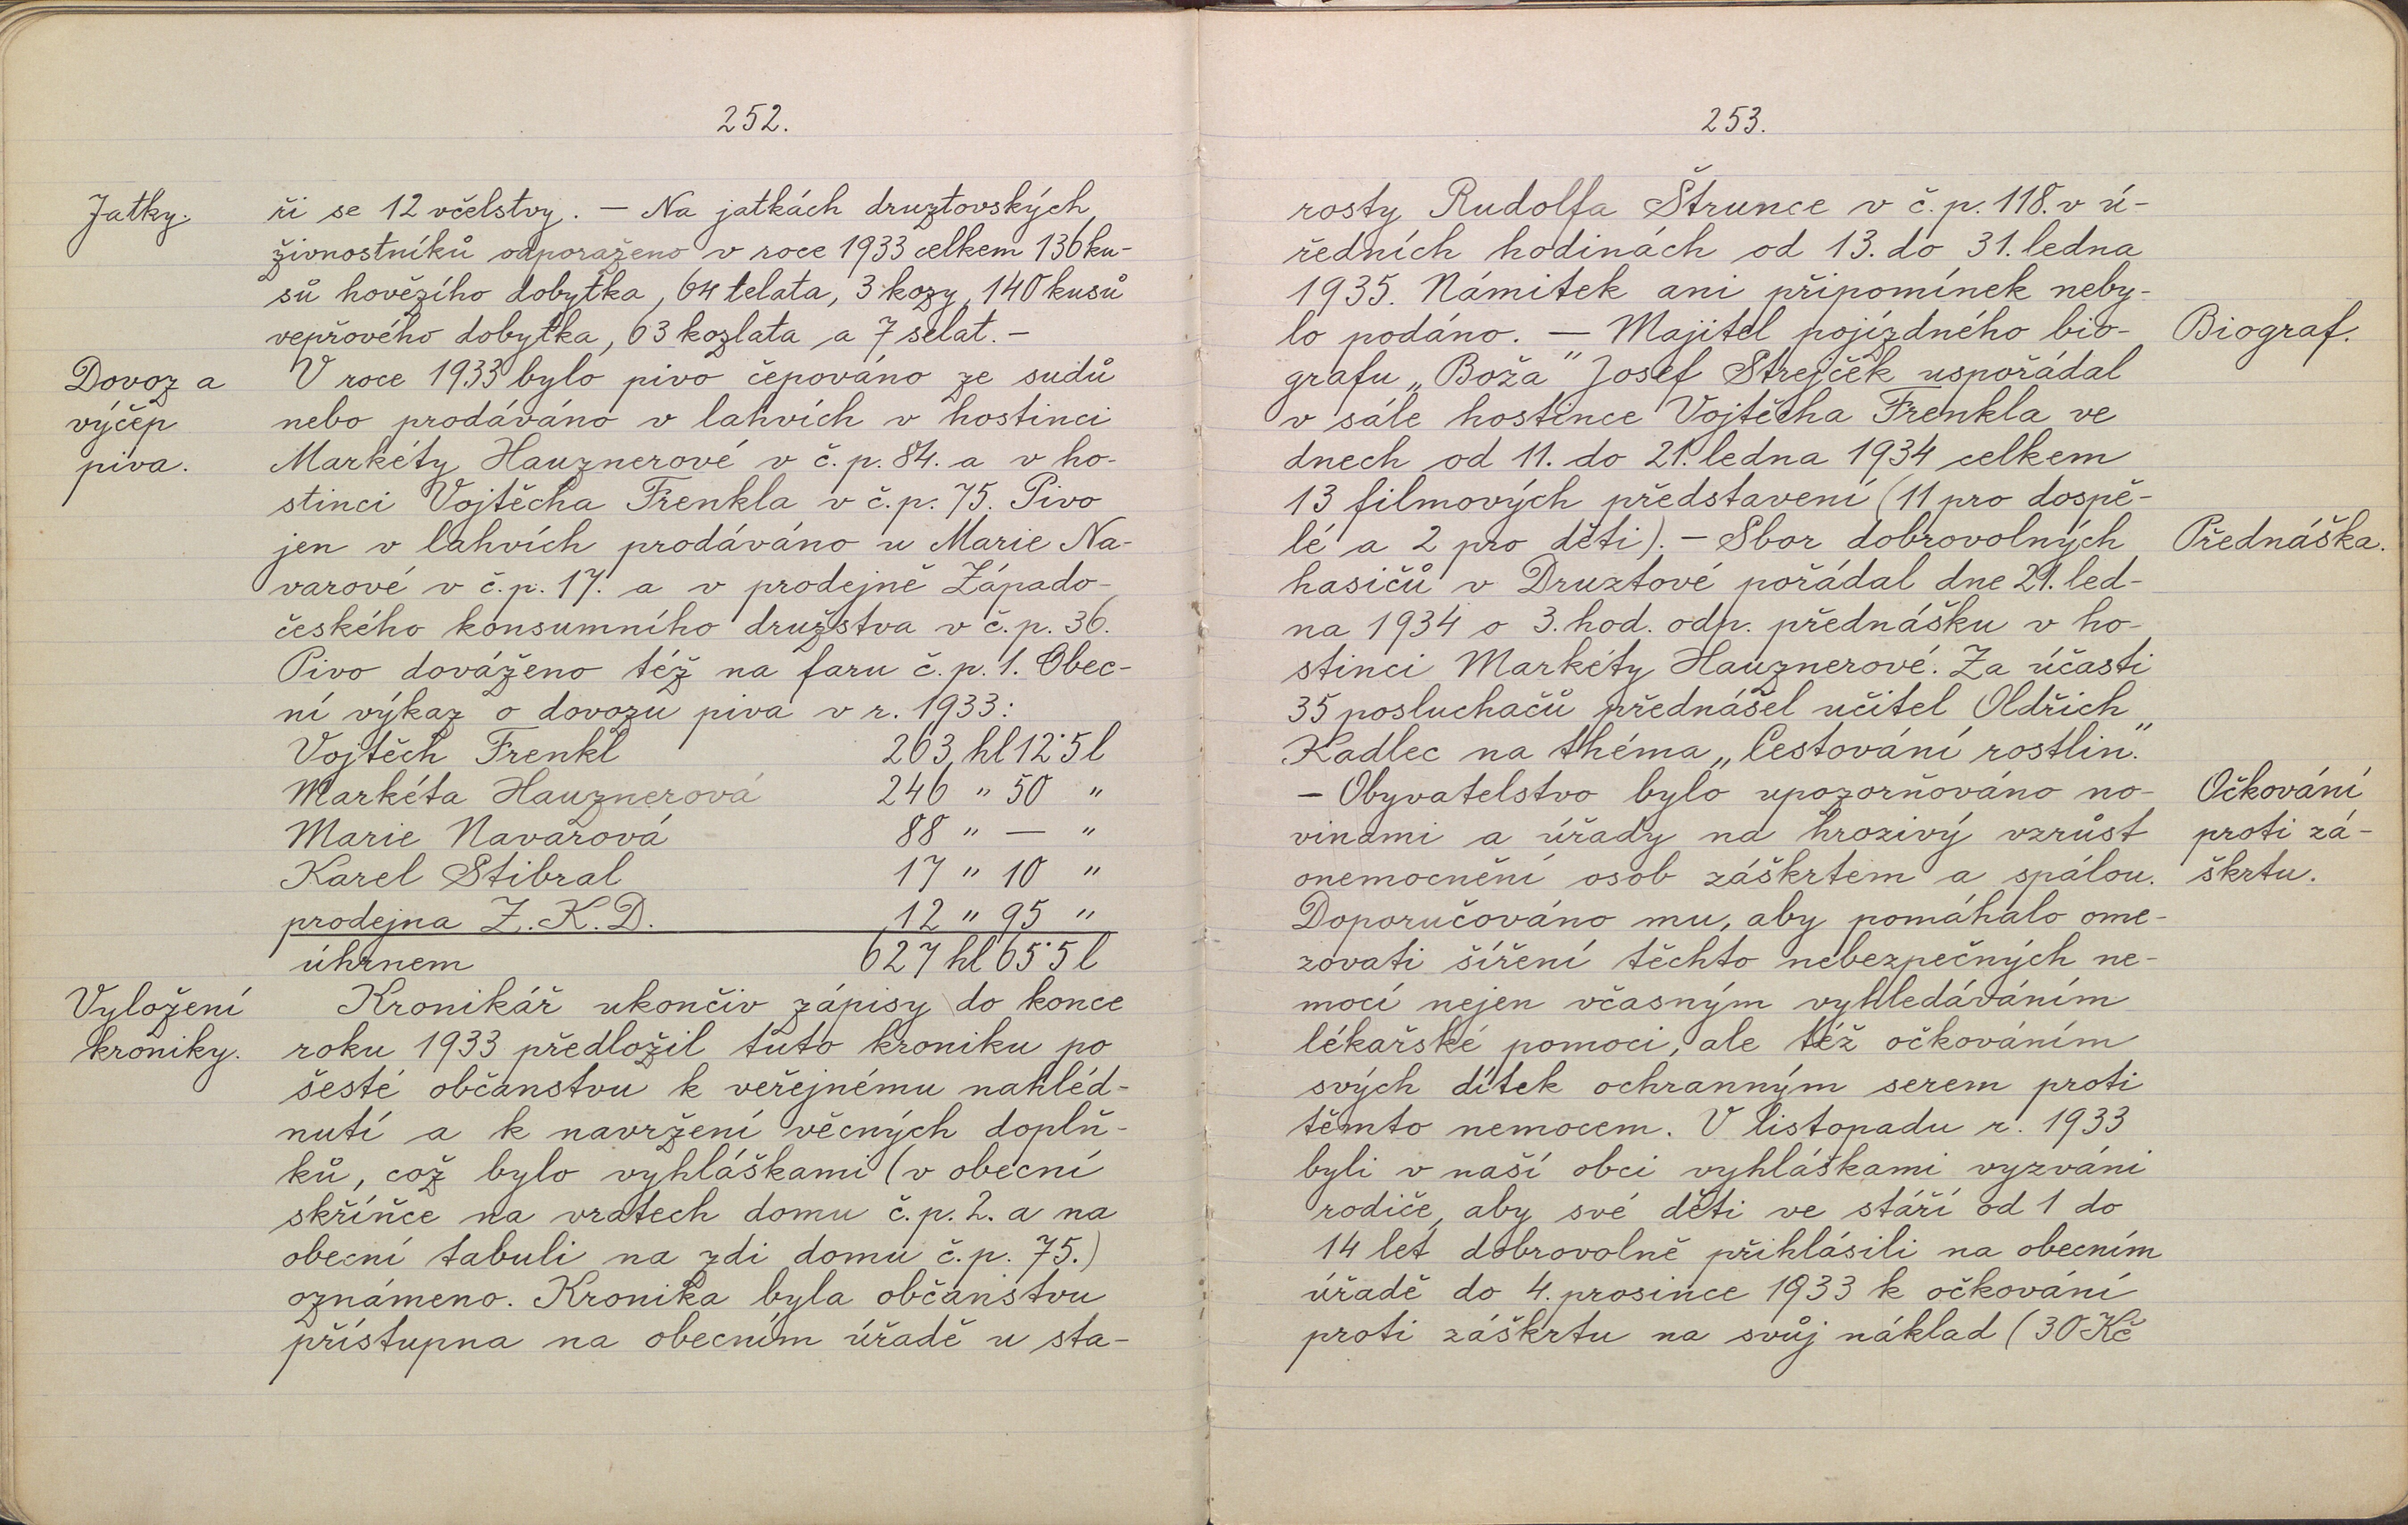 252.
Jatky.
ři se 12 včelstvy. — Na jatkách druztovských
živnostníků odporaženo v roce 1933 celkem 136 ku-
sů hovězího dobytka, 64 telata, 3 kozy, 140 kusů
vepřového dobytka, 63 kozlata a 7 selat. —
Dovoz a
výčep
piva.
V roce 1933 bylo pivo čepováno ze sudů
nebo prodáváno v lahvích v hostinci
Markéty Hauznerové v č.p. 84. a v ho-
stinci Vojtěcha Frenkla v č.p. 75. Pivo
jen v lahvích prodáváno u Marie Na-
varové v č.p. 17. a v prodejně Západo-
českého konsumního družstva v č.p. 36.
Pivo dováženo též na faru č.p. 1. Obec-
ní výkaz o dovozu piva v r. 1933:
Vojtěch Frenkl 263 hl 12·5 l
Markéta Hauznerová 246 " 50 "
Marie Navarová 88 " — "
Karel Stibral 17 " 10 "
prodejna Z.K.D. 12 " 95 "
úhrnem 627 hl 65·5 l
Vyložení
kroniky.
Kronikář ukončiv zápisy do konce
roku 1933 předložil tuto kroniku po
šesté občanstvu k veřejnému nahléd-
nutí a k navržení věcných doplň-
ků, což bylo vyhláškami (v obecní
skříňce na vratech domu č.p. 2. a na
obecní tabuli na zdi domu č.p. 75.)
oznámeno. Kronika byla občanstvu
přístupna na obecním úřadě u sta-
253.
rosty Rudolfa Štrunce v č.p. 118. v ú-
ředních hodinách od 13. do 31. ledna
1935. Námitek ani připomínek neby-
lo podáno. — Majitel pojízdného bio-
Biograf.
grafu „Boža" Josef Strejček uspořádal
v sále hostince Vojtěcha Frenkla ve
dnech od 11. do 21. ledna 1934 celkem
13 filmových představení (11 pro dospě-
lé a 2 pro děti). — Sbor dobrovolných
Přednáška.
hasičů v Druztové pořádal dne 21. led-
na 1934 o 3. hod. odp. přednášku v ho-
stinci Markéty Hauznerové. Za účasti
35 posluchačů přednášel učitel Oldřich
Kadlec na théma „Cestování rostlin".
— Obyvatelstvo bylo upozorňováno no-
Očkování
proti zá-
škrtu.
vinami a úřady na hrozivý vzrůst
onemocnění osob záškrtem a spálou.
Doporučováno mu, aby pomáhalo ome-
zovati šíření těchto nebezpečných ne-
mocí nejen včasným vyhledáváním
lékařské pomoci, ale též očkováním
svých dítek ochranným serem proti
těmto nemocem. V listopadu r. 1933
byli v naší obci vyhláškami vyzváni
rodiče, aby své děti ve stáří od 1 do
14 let dobrovolně přihlásili na obecním
úřadě do 4. prosince 1933 k očkování
proti záškrtu na svůj náklad (30 Kč